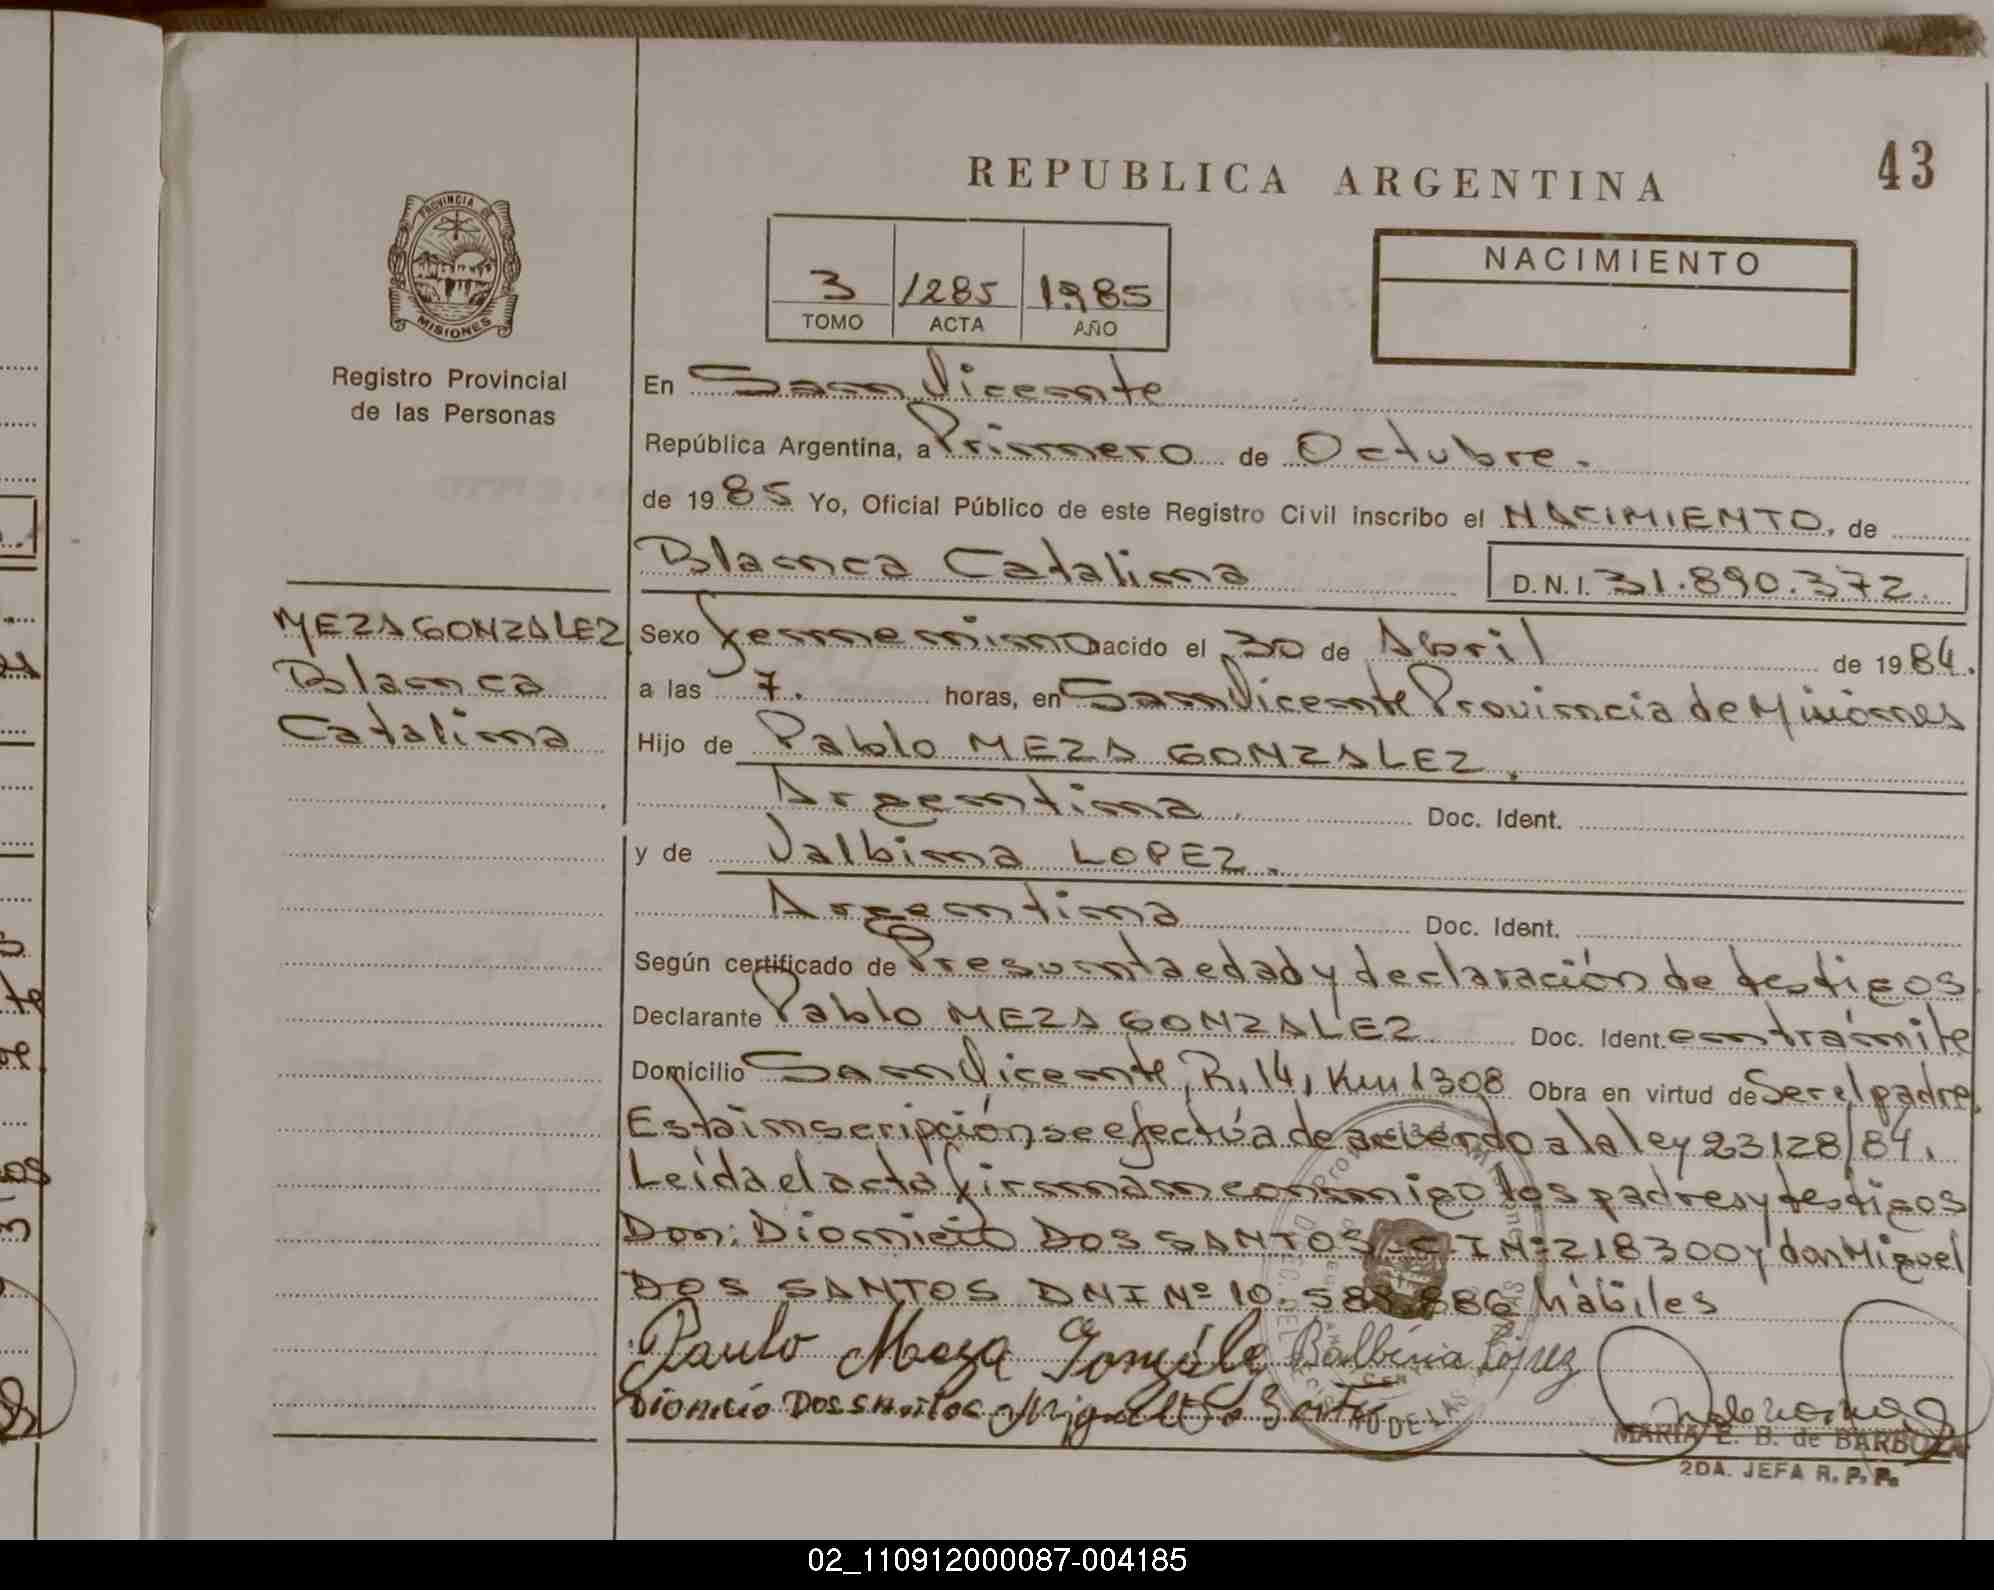 43
REPUBLICA ARGENTINA
PROVINCIA DE
MISIONES
Registro Provincial
de las Personas
NACIMIENTO
3 1285 1985
TOMO ACTA AÑO
En San Vicente
República Argentina, a Primero de Octubre.
de 1985 Yo, Oficial Público de este Registro Civil inscribo el NACIMIENTO. de
Blanca Catalina D.N.I. 31.890.372.
MEZA GONZALEZ
Blanca
Catalina
Sexo femenino nacido el 30 de Abril de 1984.
a las 7. horas, en San Vicente Provincia de Misiones
Hijo de Pablo MEZA GONZALEZ.
Argentina Doc. Ident.
y de Valbina LOPEZ.
Argentina Doc. Ident.
Según certificado de Presunta edad y declaración de testigos
Declarante Pablo MEZA GONZALEZ Doc. Ident. en trámite
Domicilio San Vicente, R. 14, Km 1308 Obra en virtud de Ser el padre.
Esta inscripción se efectúa de acuerdo a la ley 23128/84.
Leída el acta firman conmigo los padres y testigos
Don: Dionicio DOS SANTOS - C.I Nº 218300 y don Miguel
DOS SANTOS DNI Nº 10. hábiles
Paulo Meza Gonzále Balbina López
Dionicio Dos Santos Miguel
MARIA E. B. de BARBOZA
2DA. JEFA R. P. P.
02_110912000087-004185